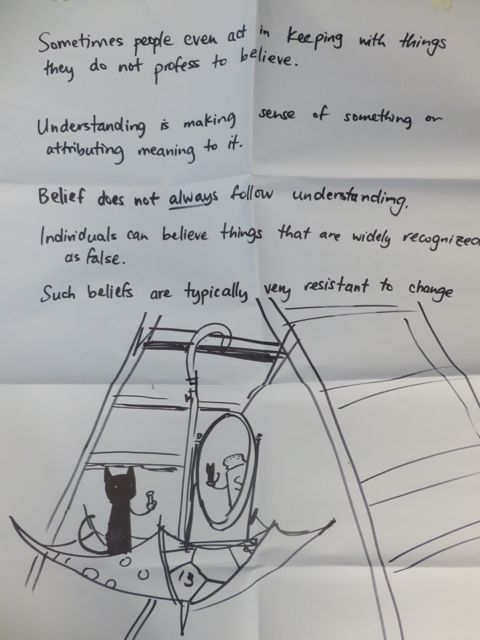 Sometimes people even act in keeping with things
they do not profess to believe.
Understanding is making sense of something or
attributing meaning to it.
Belief does not always follow understanding.
Individuals can believe things that are widely recognized
as false.
Such beliefs are typically very resistant to change
13